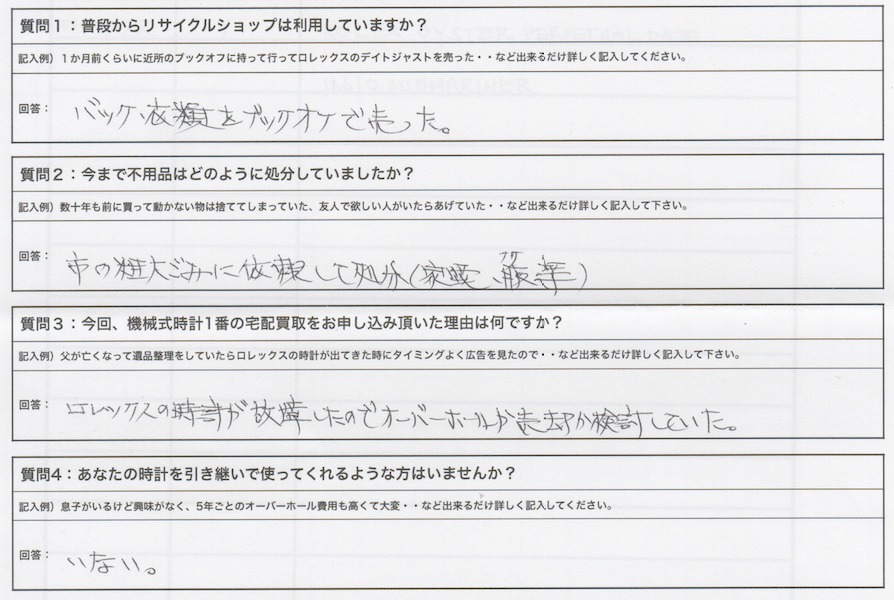 質問1：普段からリサイクルショップは利用していますか？
記入例）1か月前くらいに近所のブックオフに持って行ってロレックスのデイトジャストを売った・・など出来るだけ詳しく記入してください。
回答： バッグ、衣類をブックオフで売った。
質問2：今まで不用品はどのように処分していましたか？
記入例）数十年も前に買って動かない物は捨ててしまっていた、友人で欲しい人がいたらあげていた・・など出来るだけ詳しく記入して下さい。
回答： 市の粗大ごみに依頼して処分（家電、服等）
質問3：今回、機械式時計1番の宅配買取をお申し込み頂いた理由は何ですか？
記入例）父が亡くなって遺品整理をしていたらロレックスの時計が出てきた時にタイミングよく広告を見たので・・など出来るだけ詳しく記入して下さい。
回答： ロレックスの時計が故障したのでオーバーホールか売却か検討していた。
質問4：あなたの時計を引き継いで使ってくれるような方はいませんか？
記入例）息子がいるけど興味がなく、5年ごとのオーバーホール費用も高くて大変・・など出来るだけ詳しく記入してください。
回答： いない。